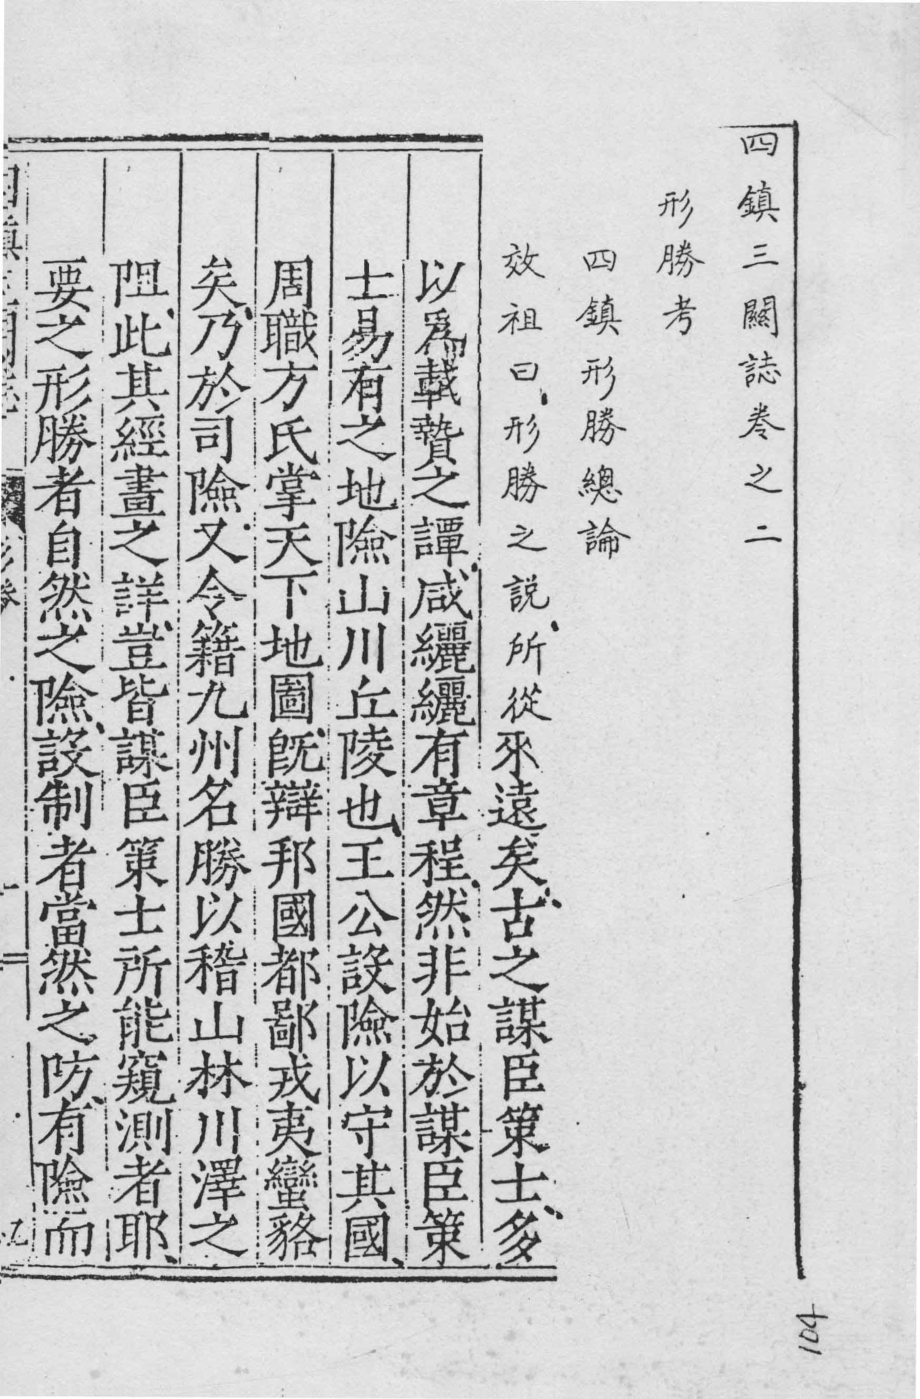 四鎮三關誌卷之二
形勝考
四鎮形勝總論
效祖曰、形勝之說、所從來遠矣、古之謀臣策士、多
以爲載贄之譚、咸纚纚有章程、然非始於謀臣策
士、易有之地險山川丘陵也、王公設險以守其國、
周職方氏掌天下地圖旣辯邦國都鄙戎夷蠻貉
矣、乃於司險、又令籍九州名勝以稽山林川澤之
阻、此其經畫之詳、豈皆謀臣策士所能窺測者耶、
要之形勝者自然之險、設制者當然之防、有險而
104